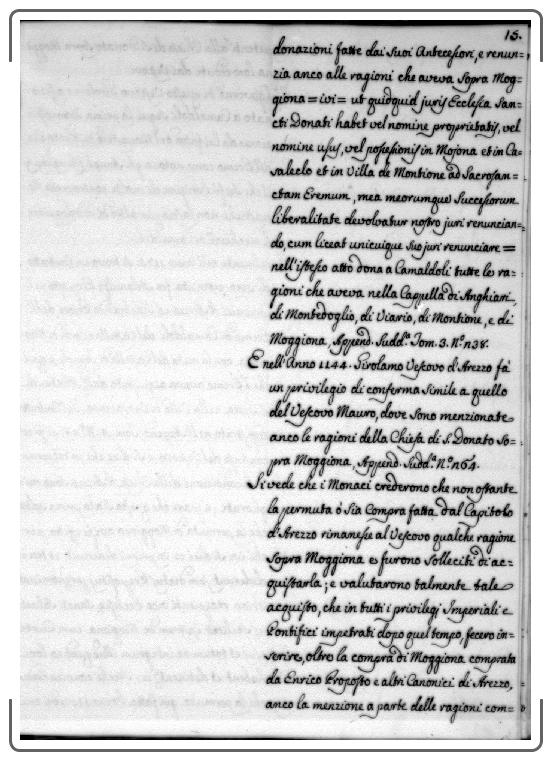 15.
donazioni fatte dai Suoi Antecessori, e renun=
zia anco alle ragioni che aveva Sopra Mog=
giona = ivi = ut quidquid juris Ecclesia San=
cti Donati habet vel nomine proprietatis, vel
nomine usus, vel possessionis in Mojona et in Ca=
saleclo et in Villa de Montione ad Sacrosan=
ctam Eremum, mea meorumque Successorum
liberalitate devolvatur nostro juri renuncian=
do, cum liceat unicuique suo juri renunciare =
nell'istesso atto dona a Camaldoli tutte le ra=
gioni che aveva nella Cappella di Anghiari,
di Montedoglio, di Viario, di Montione, e di
Moggiona, Append. Sudd.ª Tom. 3. N.º n38.
E nell'Anno 1144. Girolamo Vescovo d'Arezzo fà
un privilegio di conferma Simile a quello
del Vescovo Mauro, dove Sono menzionate
anco le ragioni della Chiesa di S. Donato So=
pra Moggiona, Append. Sudd.ª N.º n64.
Si vede che i Monaci crederono che non ostante
la permuta ò Sia Compra fatta dal Capitolo
d'Arezzo rimanesse al Vescovo qualche ragione
Sopra Moggiona e furono Solleciti di ac=
quistarla; e valutarono talmente tale
acquisto, che in tutti i privilegi Imperiali e
Pontifici impetrati dopo quel tempo, fecero in=
serire, oltre la compra di Moggiona comprata
da Enrico Proposto e altri Canonici di Arezzo,
anco la menzione a parte delle ragioni com=